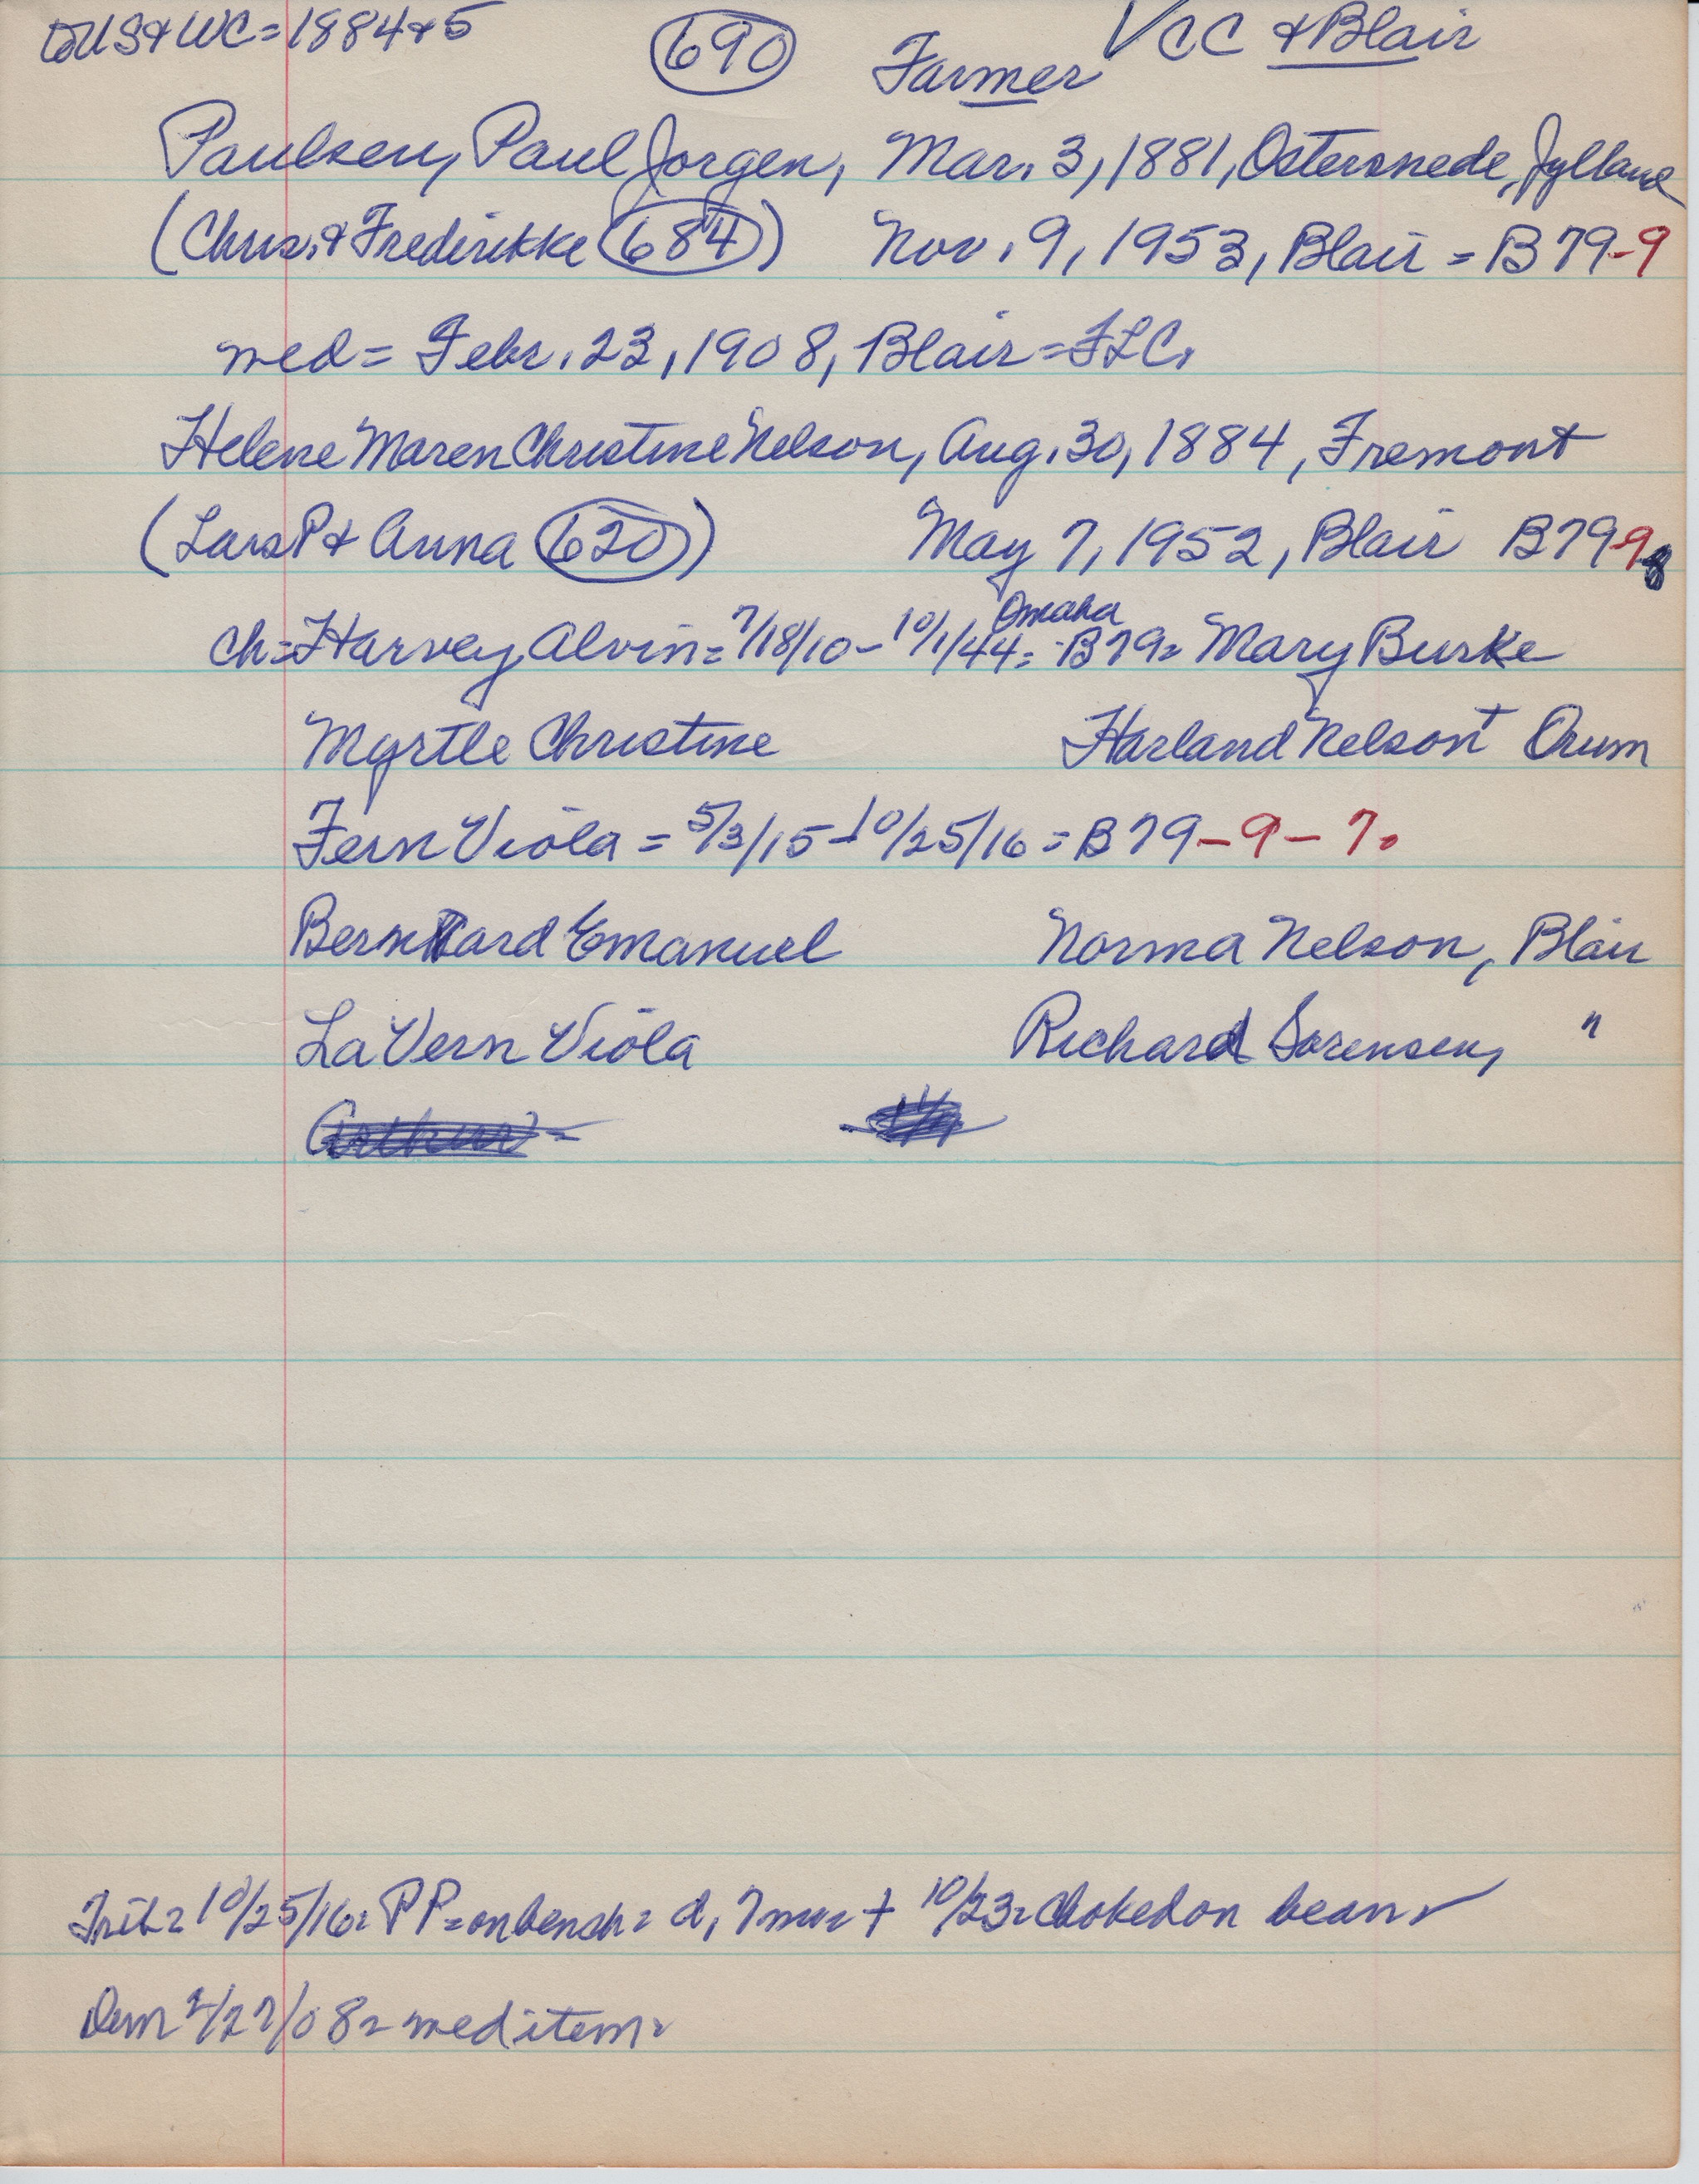 to US & WC = 1884 & 5 690 Farmer VCC & Blair
Paulsen, Paul Jorgen, Mar. 3, 1881, Ostersnede, Jylland
(Chris. & Frederikke 684) Nov. 9, 1953, Blair = B79-9
med = Febr. 23, 1908, Blair = FLC.
Helene Maren Christine Nelson, Aug. 30, 1884, Fremont
(Lars P & Anna 620) May 7, 1952, Blair B79-9-8
Omaha
ch = Harvey Alvin = 7/18/10 - 10/1/44 = B79 = Mary Burke
Myrtle Christine Harland Nelson Orum
Fern Viola = 5/3/15 - 10/25/16 = B79-9-7.
Bernhard Emanuel Norma Nelson, Blair
La Vern Viola Richard Sorensen, "
Trib = 10/25/16 = PP = on bench = d, 7 mw = + 10/23 = Choked on bean
Dem 2/27/08 = med item =